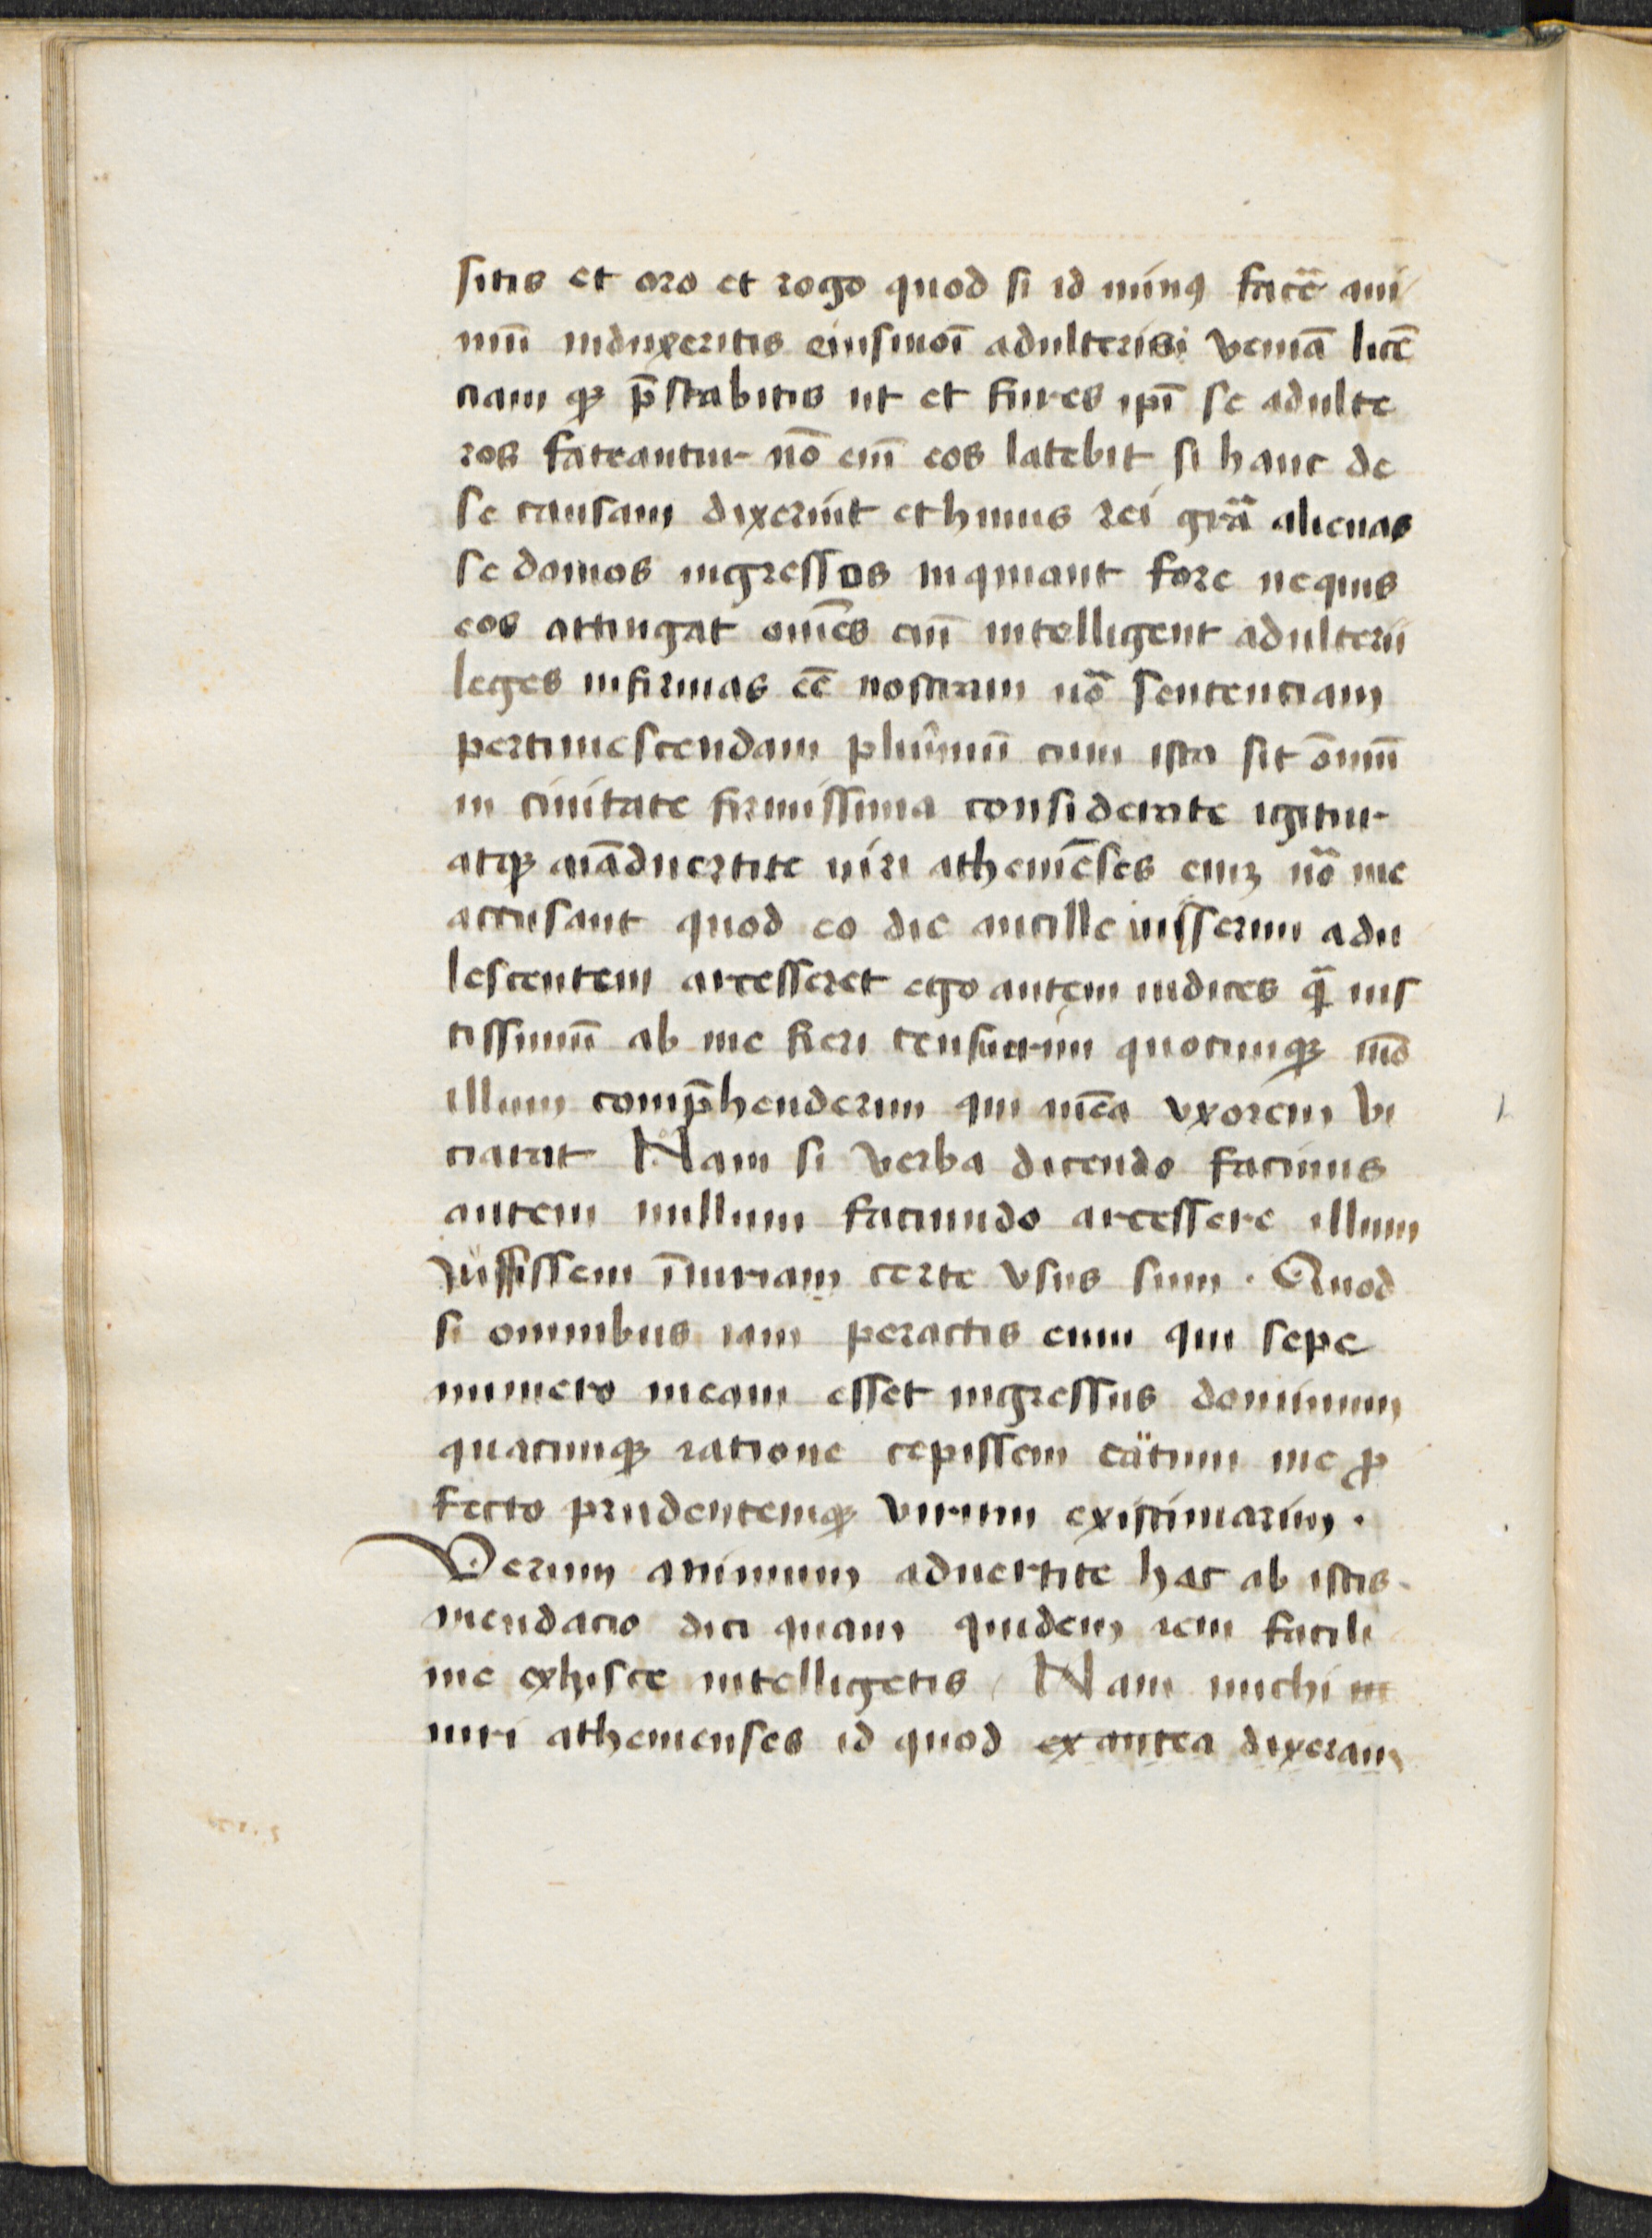 sitis et oro et rogo quod si id minꝰ facē ani
mū induxeritis eiusmoī adulterisi veniā licē
ciam qꝫ p̄stabitis ut et fures ipī se adulte
ros fateantur nō eīm eos latebit si hanc de
se causam dixerint et huius rei grā alienas
se domos ingressos inquiant fore ne quis
eos attingat om̄es eīm intelligent adulterii
leges infirmas eē nostram nō sentenciam
pertimescendam plurimū cum ista sit om̄iū
in ciuitate firmissima considerate igitur
atqꝫ aīaduertite uiri athenienses eīꝫ nō me
accusant quod eo die ancille iusserim adu
lescentem arcesseret ego autem iudices ꝗ̄ ius
tissimū ab me fieri censuerim quocumqꝫ mō
illum comp̄henderim qui meā vxorem vi
ciarat Nam si verba dicendo facinus
autem nullum faciundo arcessere illum
iussissem iniuriam certe vsus sum . Quod
si omnibus iam peractis eum qui sepe
numero meam esset ingressus domum
quacumqꝫ ratione cepissem cātum me ꝓ
fecto prudentemqꝫ virum existimarim .
Verum animum aduertite hac ab istis
mendacio dici quam quidem rem facili
me ex hisce intelligetis / Nam michi
uiri athenienses id quod ex antea dixeram